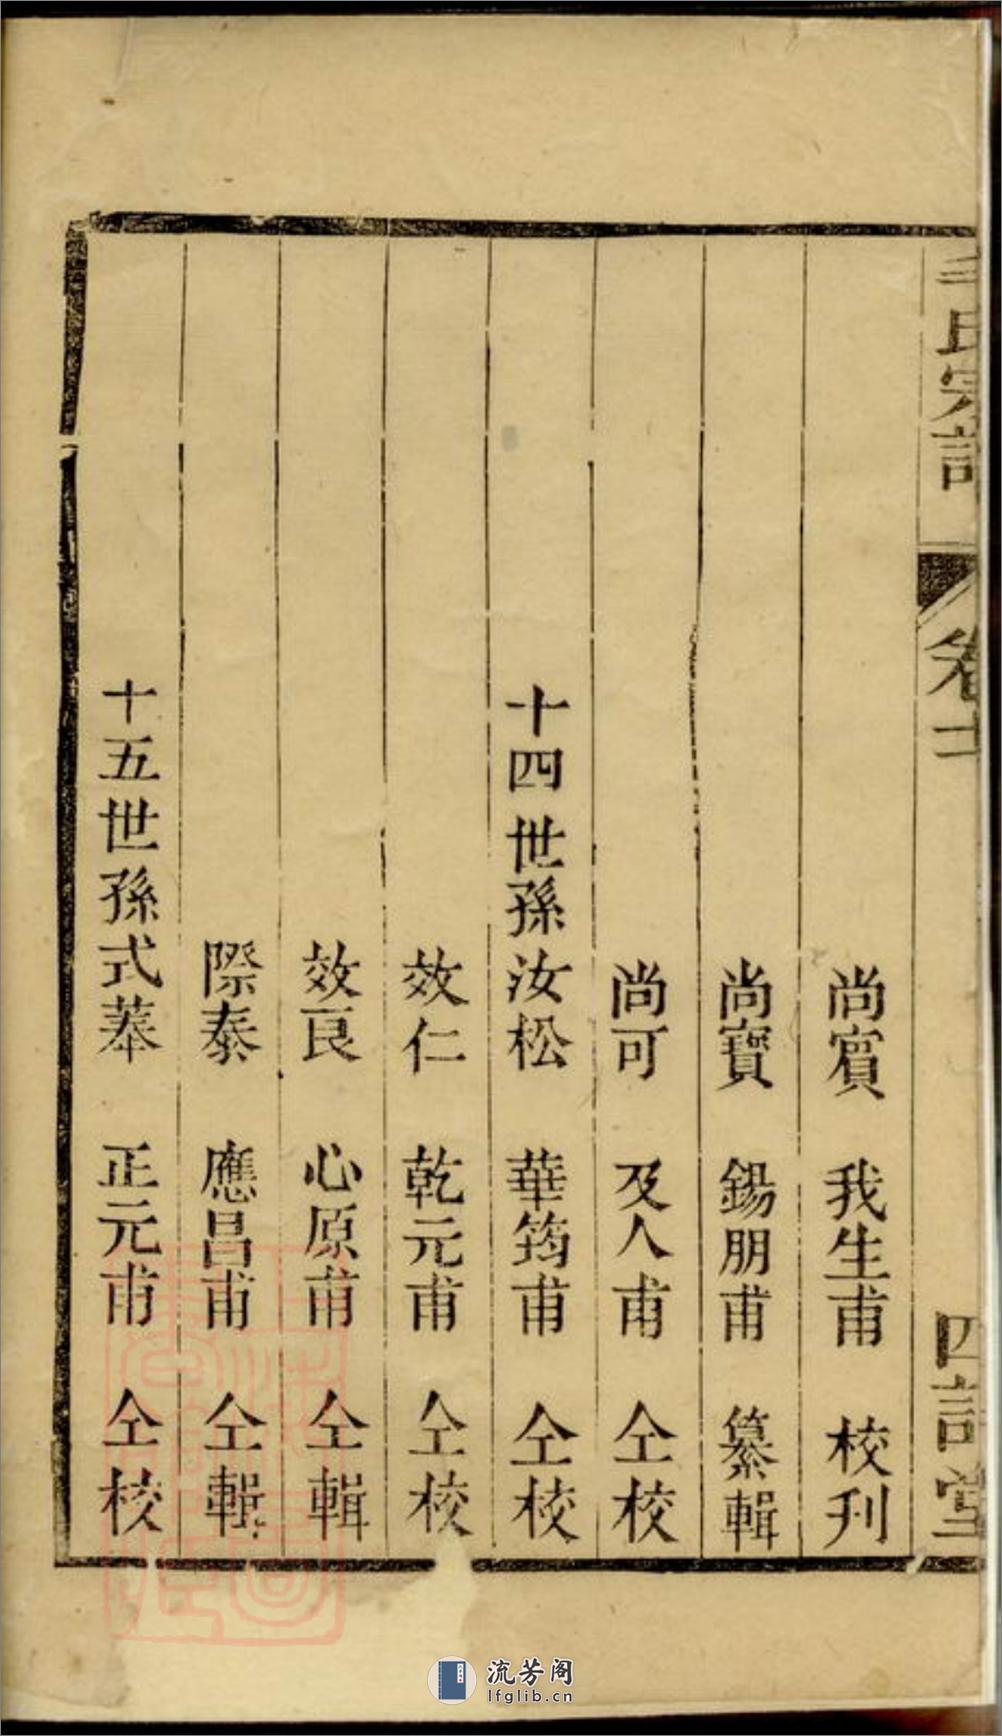 氏宗譜
卷十
四詩堂
尚賓　我生甫　校刋
尚寶　錫朋甫　纂輯
尚可　及人甫　仝校
十四世孫汝松　華筠甫　仝校
效仁　乾元甫　仝校
效良　心原甫　仝輯
際泰　應昌甫　仝輯
十五世孫式菶　正元甫　仝校
流芳阁
lfglib.cn